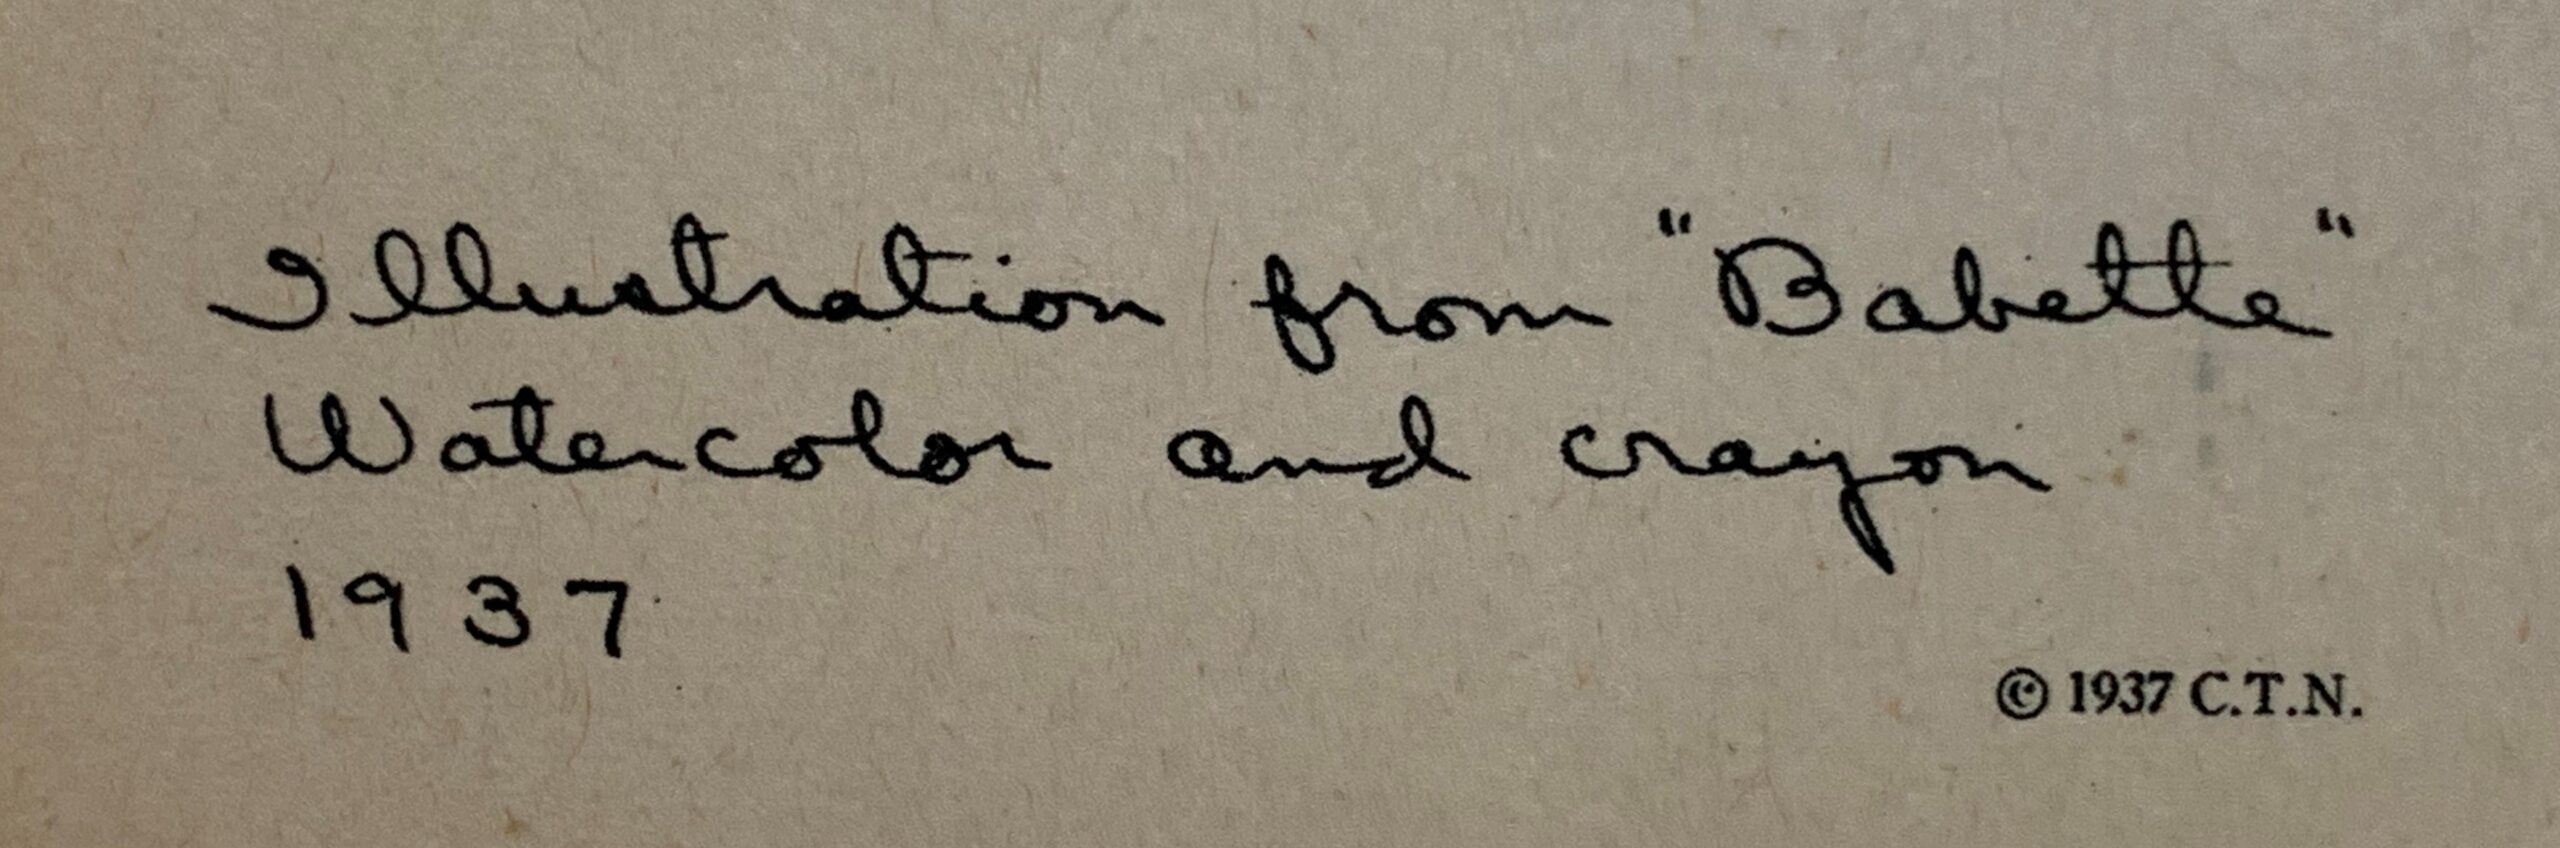 Illustration from "Babette"
Watercolor and crayon
1937
© 1937 C.T.N.